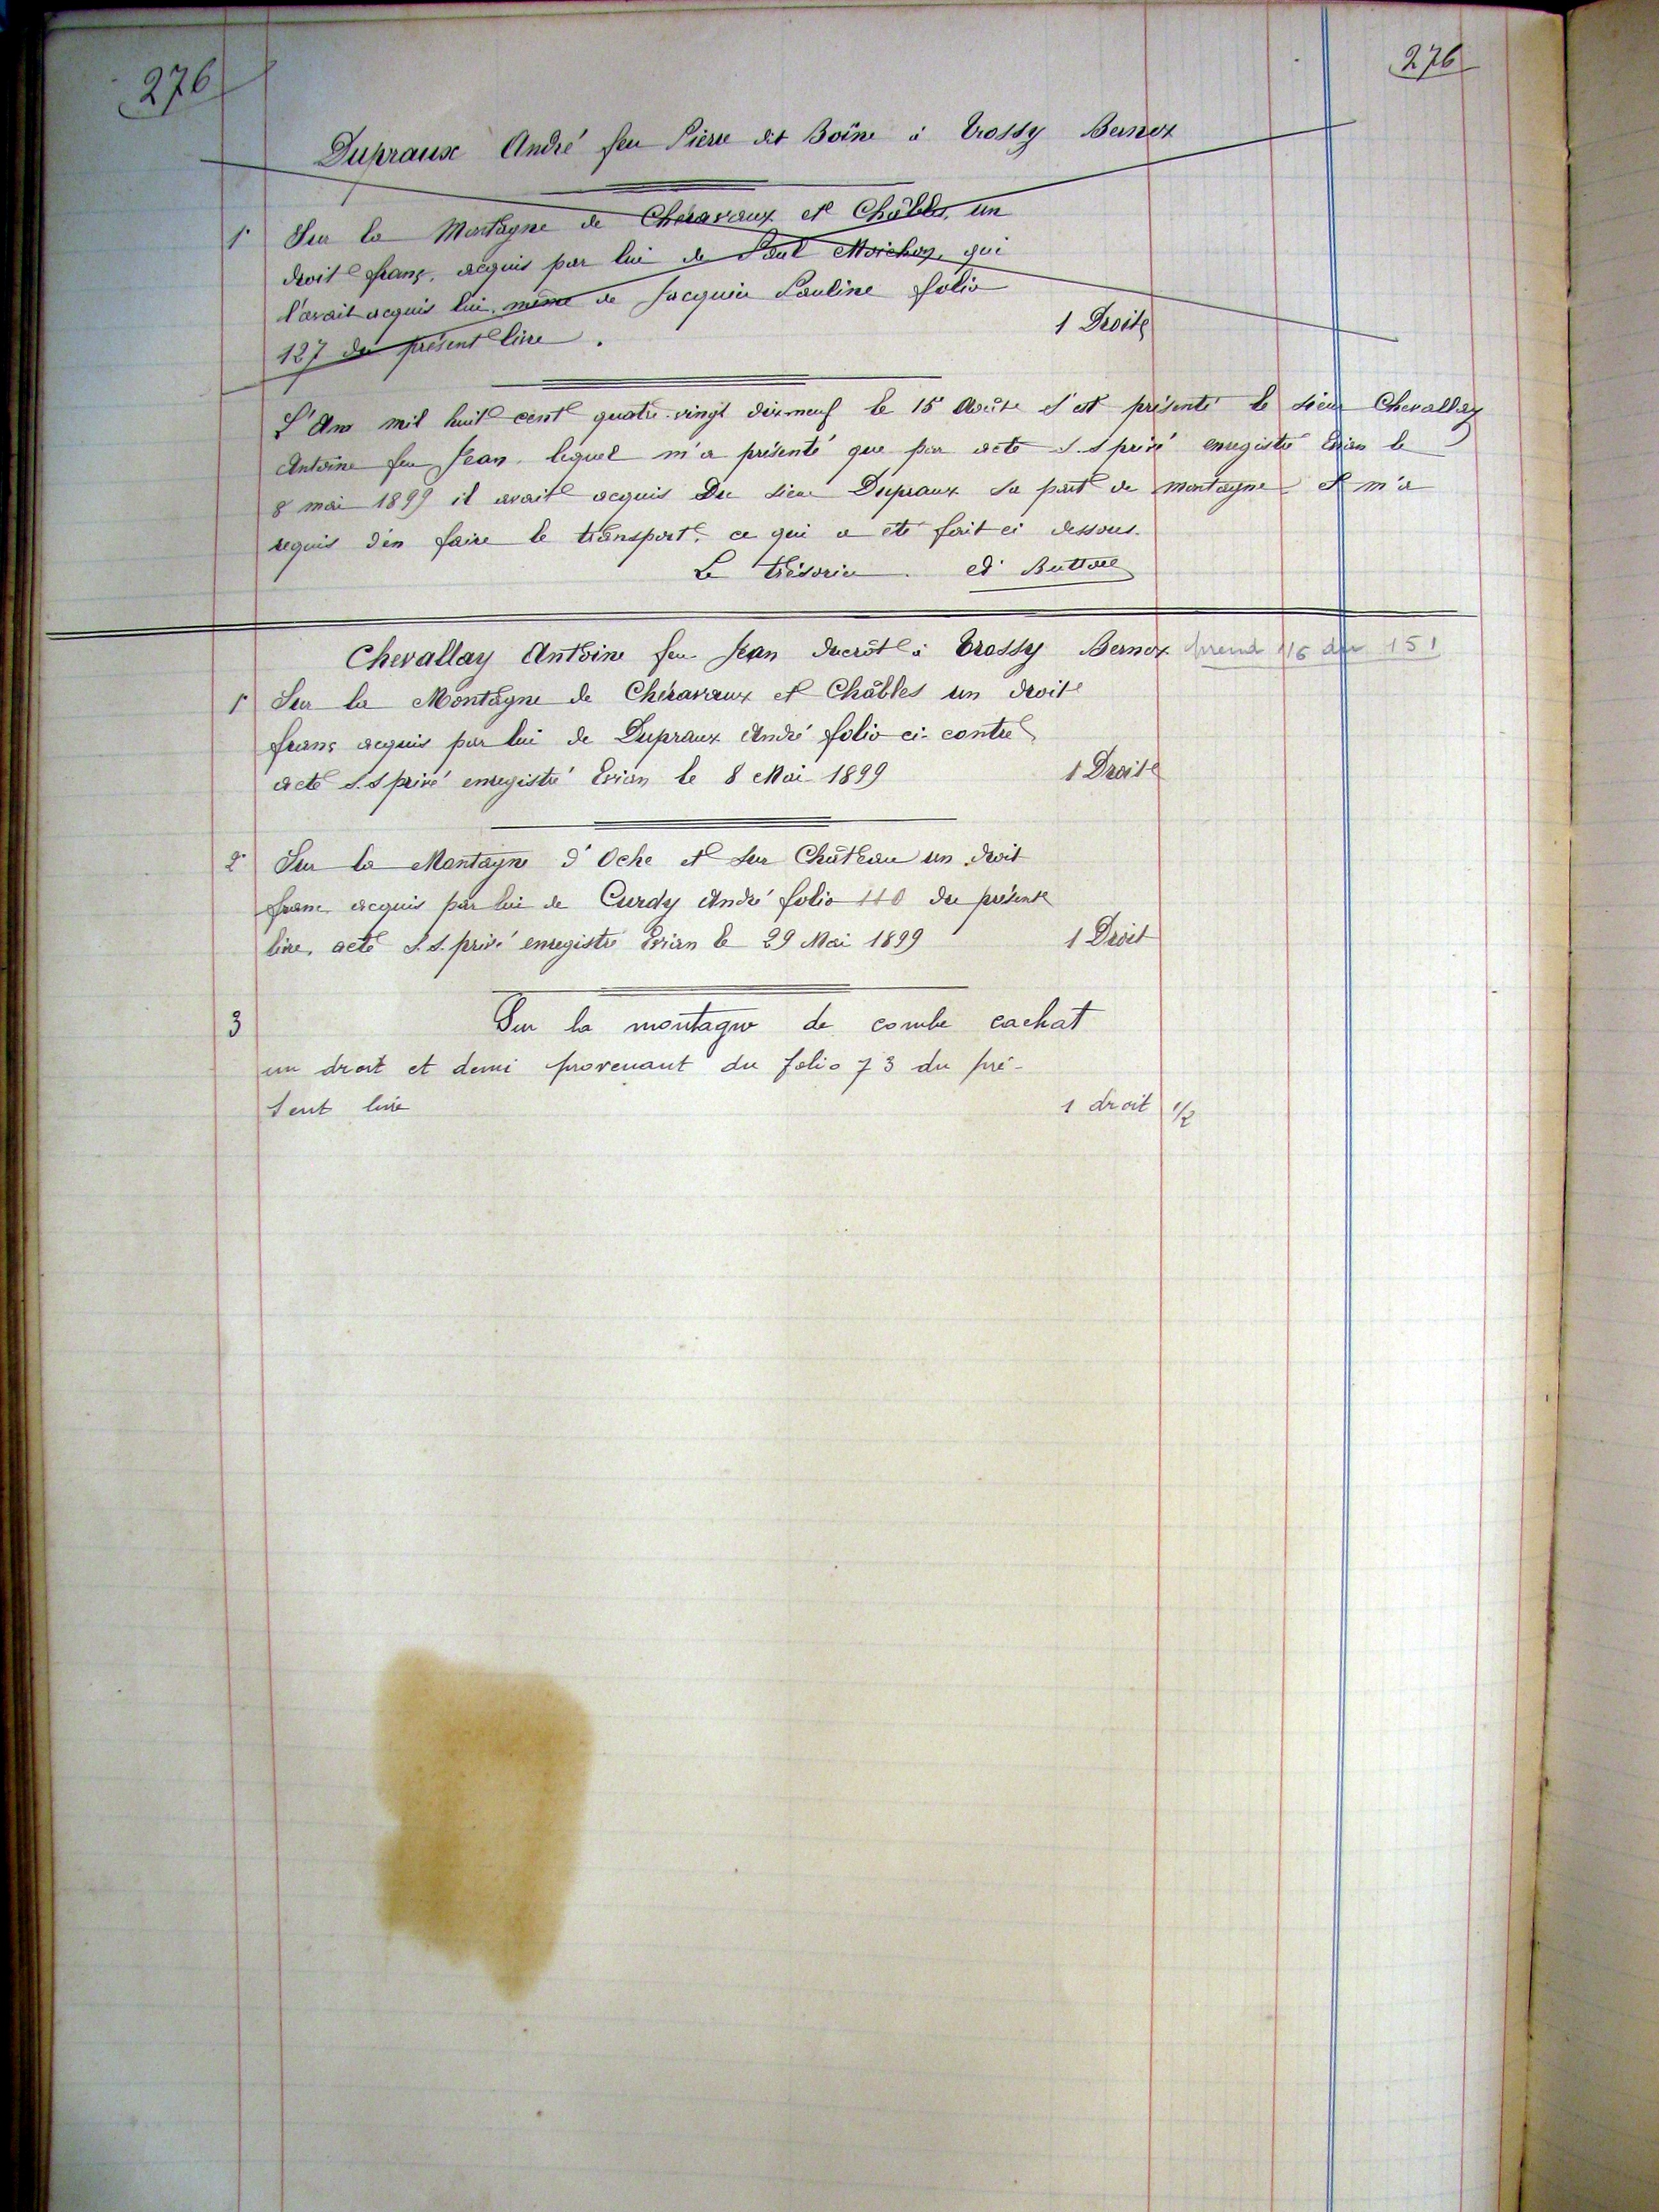 276
276
Dupraux André feu Pierre dit Boîne à Trossy Bernex
1° Sur la Montagne de Chéravaux et Châbles, un
droit franc, acquis par lui de Paul Moichoz, qui
l'avait acquis lui même de Jacquier Pauline folio
127 du présent livre.
1 Droit
L'An mil huit cent quatre-vingt dix neuf le 15 Août s'est présenté le sieur Chevallay
Antoine feu Jean lequel m'a présenté que par acte S.S privé enregistré Evian le
8 mai 1899 il avait acquis Du sieur Dupraux sa part de montagne et m'a
requis d'en faire le transport, ce qui a été fait ci dessous.
Le trésorier. ed Buttay
Chevallay Antoine feu Jean ducrôt à Trossy Bernex prend 1/6 du 151
1° Sur la Montagne de Chéravaux et Châbles un droit
franc acquis par lui de Dupraux André folio ci-contre
acte S.S privé enregistré Evian le 8 Mai 1899 1 Droit
2° Sur la Montagne d'Oche et sur Château un droit
franc acquis par lui de Curdy André folio 110 du présent
livre, acte S.S. privé enregistré Evian le 29 Mai 1899 1 Droit
3 Sur la montagne de combe cachat
un droit et demi provenant du folio 73 du pré-
sent livre 1 droit 1/2